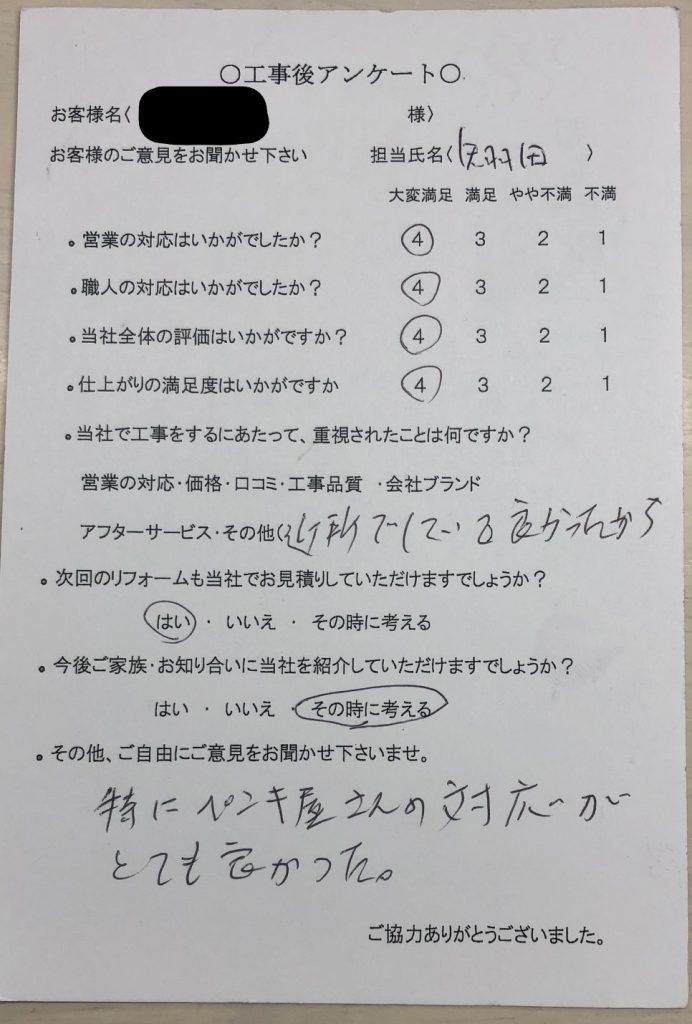 〇工事後アンケート〇
お客様名〈 様〉
お客様のご意見をお聞かせ下さい 担当氏名〈 羽田 〉
大変満足 満足 やや不満 不満
。営業の対応はいかがでしたか？ 4 3 2 1
。職人の対応はいかがでしたか？ 4 3 2 1
。当社全体の評価はいかがですか？ 4 3 2 1
。仕上がりの満足度はいかがですか 4 3 2 1
。当社で工事をするにあたって、重視されたことは何ですか？
営業の対応・価格・口コミ・工事品質 ・会社ブランド
アフターサービス・その他(近所でしている良かったから
。次回のリフォームも当社でお見積りしていただけますでしょうか？
はい ・ いいえ ・ その時に考える
。今後ご家族・お知り合いに当社を紹介していただけますでしょうか？
はい ・ いいえ ・ その時に考える
。その他、ご自由にご意見をお聞かせ下さいませ。
特にペンキ屋さんの対応が
とても良かった。
ご協力ありがとうございました。